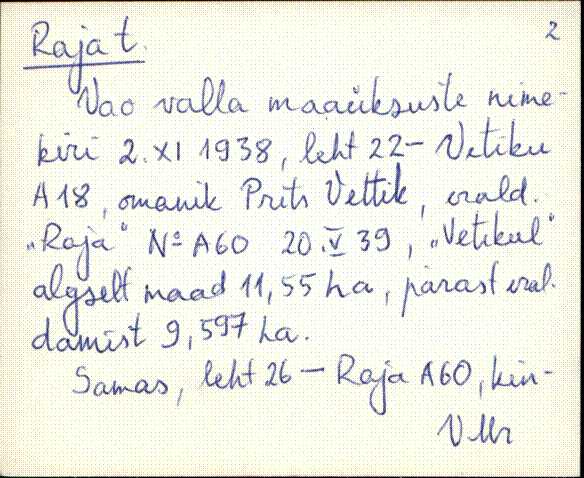 2
Raja t.
Vao valla maaüksuste nime-
kiri 2.XI 1938, leht 22 – Vetiku
A18, omanik Prits Vettik, erald.
„Raja" Nº A60 20.V 39, „Vetikul"
algselt maad 11,55 ha, pärast eral-
damist 9,597 ha.
Samas, leht 26 – Raja A60, kin-
VMr